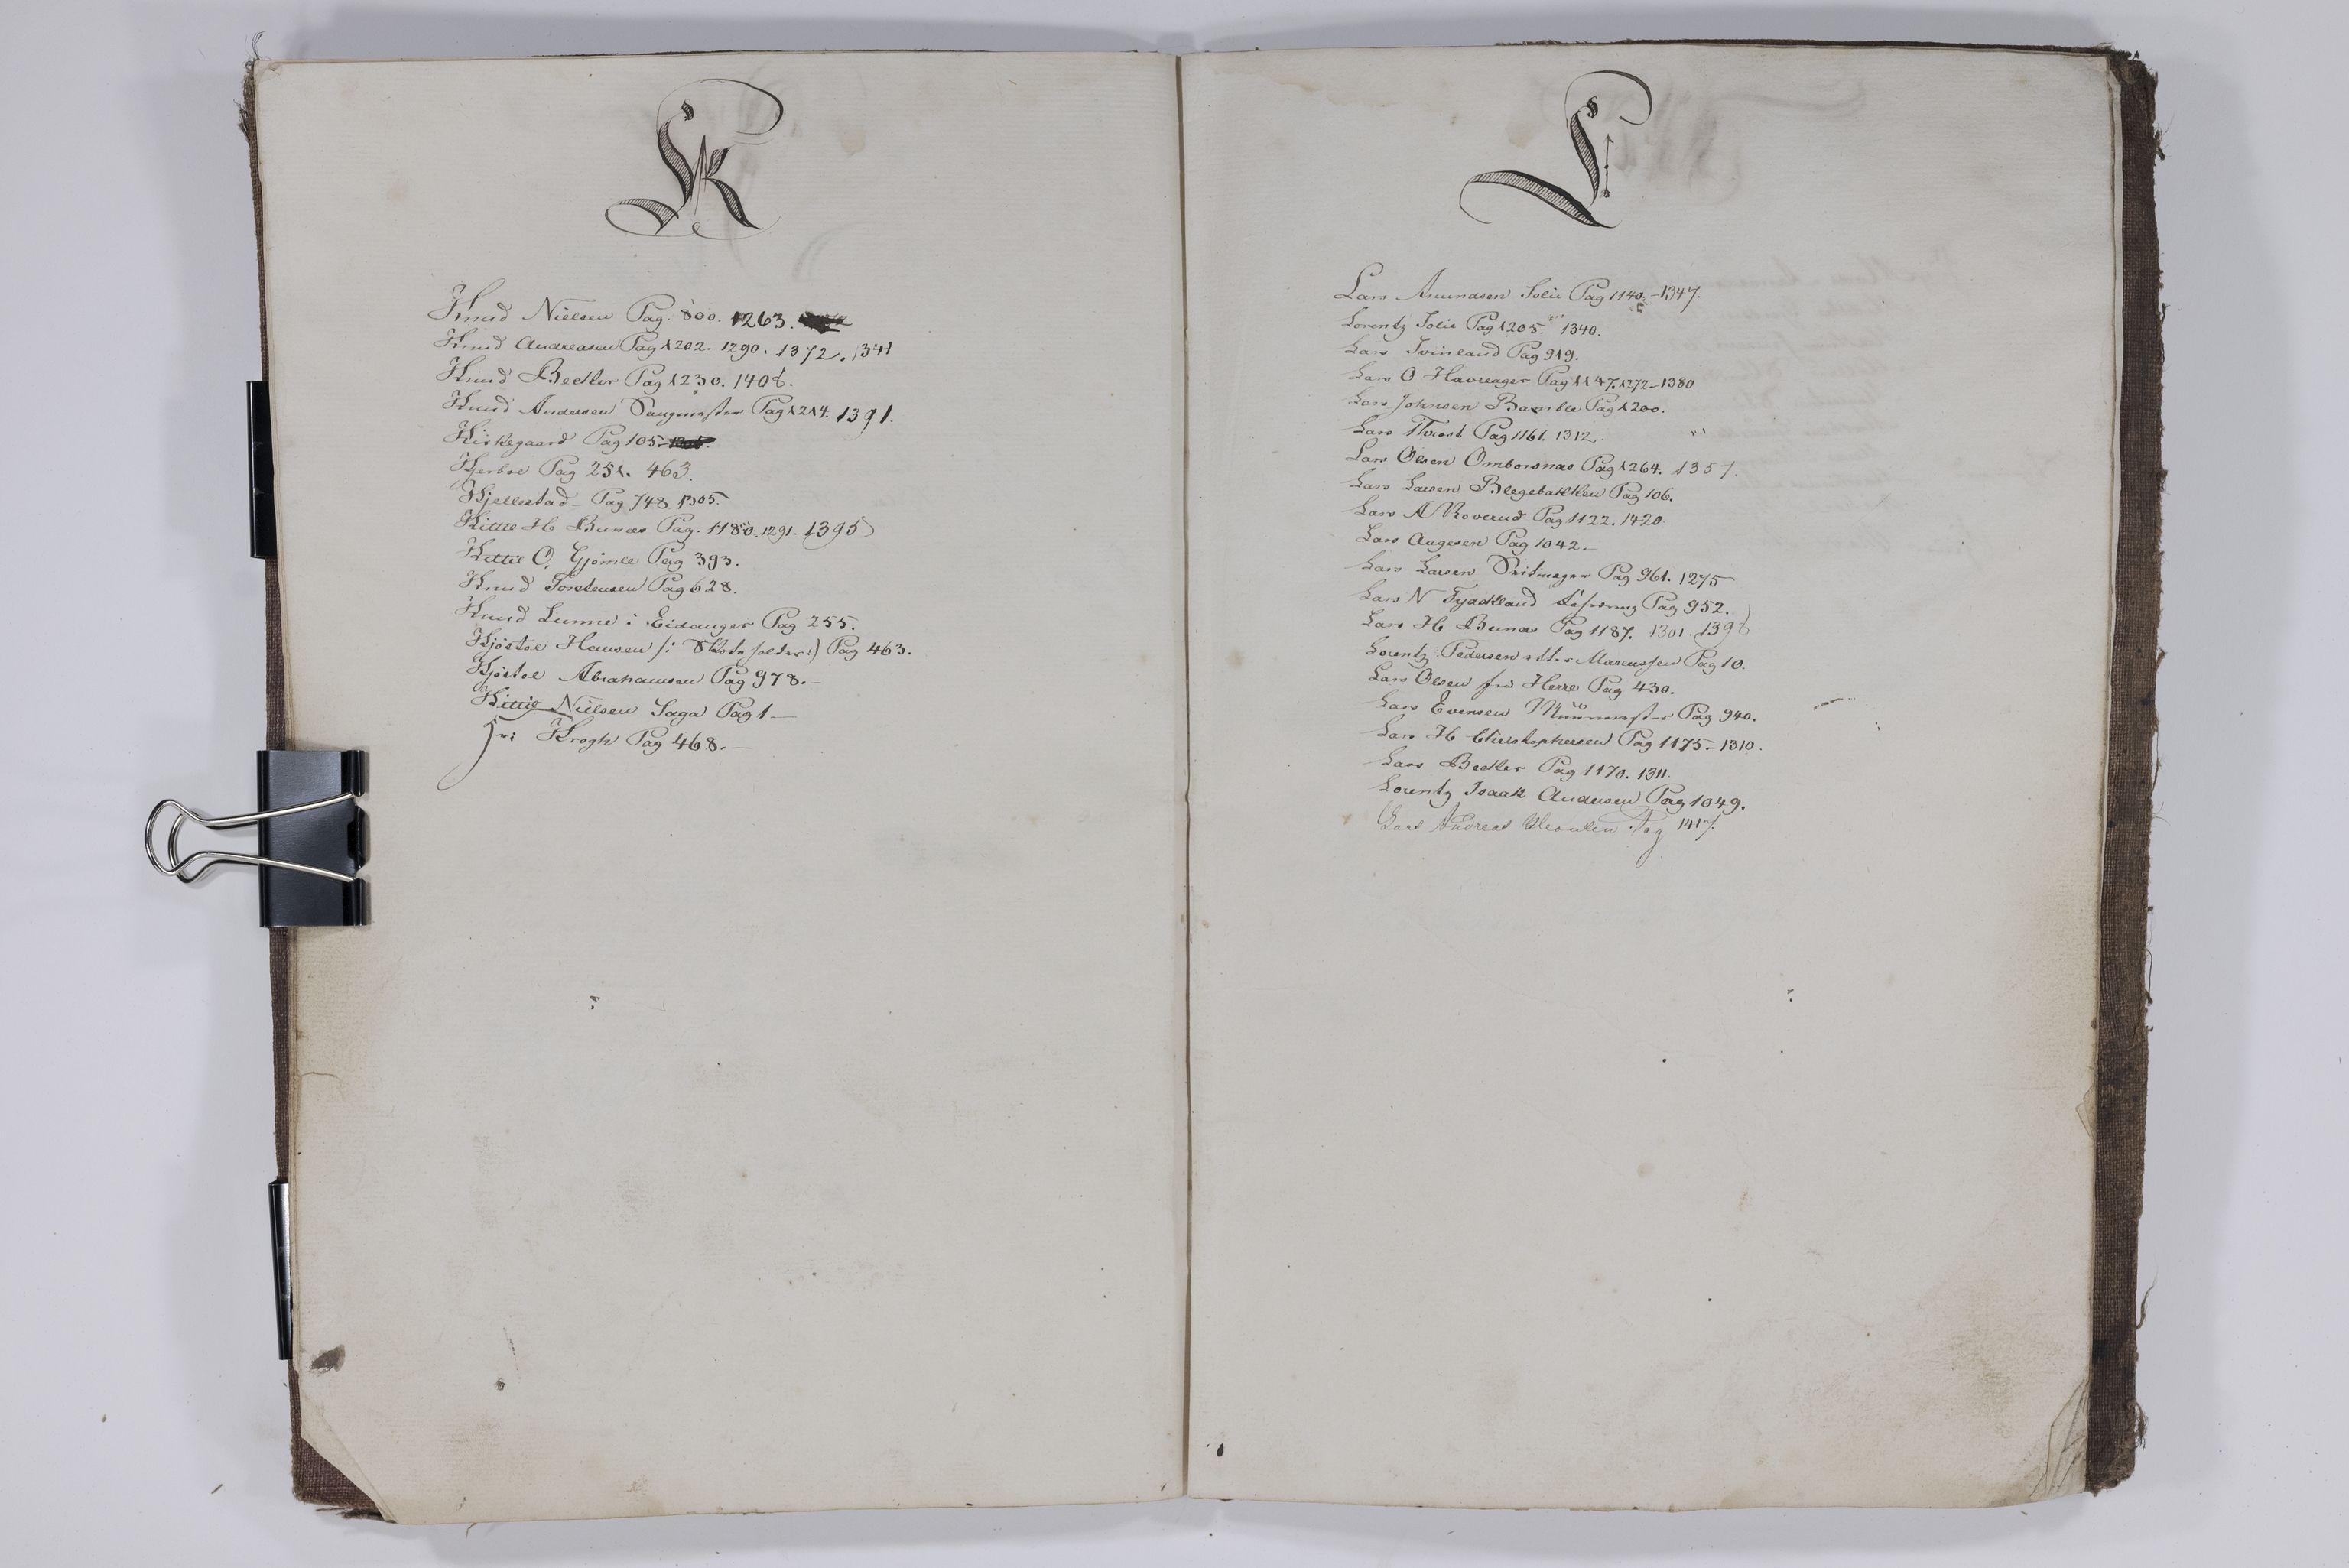 K
Knud Nielsen Pag. 800. 1263.
Knud Andreasen Pag 1202. 1290. 1372. 1341
Knud Becker Pag 1230. 1408.
Knud Andersen Saugmester Pag 1214. 1391.
Kirkegaard Pag 105.
Kjerboe Pag 251. 463.
Kjellestad Pag 748 1305.
Kittil H Bunæs Pag. 1180. 1291. 1395
Kittil O. Gjømle Pag 393.
Knud Torstensen Pag 628.
Knud Lunne i Eidanger Pag 255.
Kjøstol Hansen /: :/ Pag 463.
Kjøstol Abrahamsen Pag 978.
Kittil Nielsen Saga Pag 1
Krogh Pag 468.
L
Lars Amundsen Solie Pag 1140. 1347.
Lorentz Solie Pag 1205. 1340.
Lars Pag 919.
Lars O Havreager Pag 1147. 1272 1380
Lars Johnsen Bamble Pag 1200.
Lars Pag 1161. 1312.
Lars Olsen Omborsnæs Pag 1264. 1357.
Lars Larsen Blegebakken Pag 106.
Lars A Roverud Pag 1122. 1420
Lars Augesen Pag 1042.
Lars Larsen Pag 961. 1275
Lars N Pag 952.
Lars H Bunæs Pag 1187. 1301. 1398
Lorentz Pedersen Marcussen Pag 10.
Lars Olsen fra Herre Pag 430.
Lars Evensen Muurmester Pag 940.
Lars H Christophersen Pag 1175 1310.
Lars Becker Pag 1170. 1311.
Lorentz Isaak Andersen Pag 1049.
Lars Andreas Pag 1417.